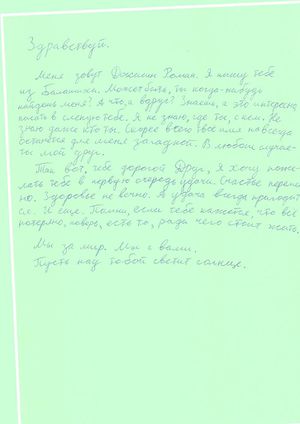 Здравствуй.
Меня зовут Джилин Роман. Я пишу тебе
из Балашихи. Может быть, ты когда-нибудь
найдёшь меня? А что, а вдруг? Знаешь, а это интересно,
писать в слепую тебе. Я не знаю, где ты, с кем. Не
знаю даже кто ты. Скорее всего твоё имя навсегда
останется для меня загадкой. В любом случае-
ты мой друг.
Так вот, тебе дорогой Друг, я хочу поже-
лать тебе в первую очередь удачи. Счастье перемен-
но. Здоровье не вечно. А удача всегда пригодит-
ся. И ещё. Помни, если тебе кажется, что всё
потеряно, поверь, есть то, ради чего стоит жить.
Мы за мир. Мы с вами.
Пусть над тобой светит солнце.